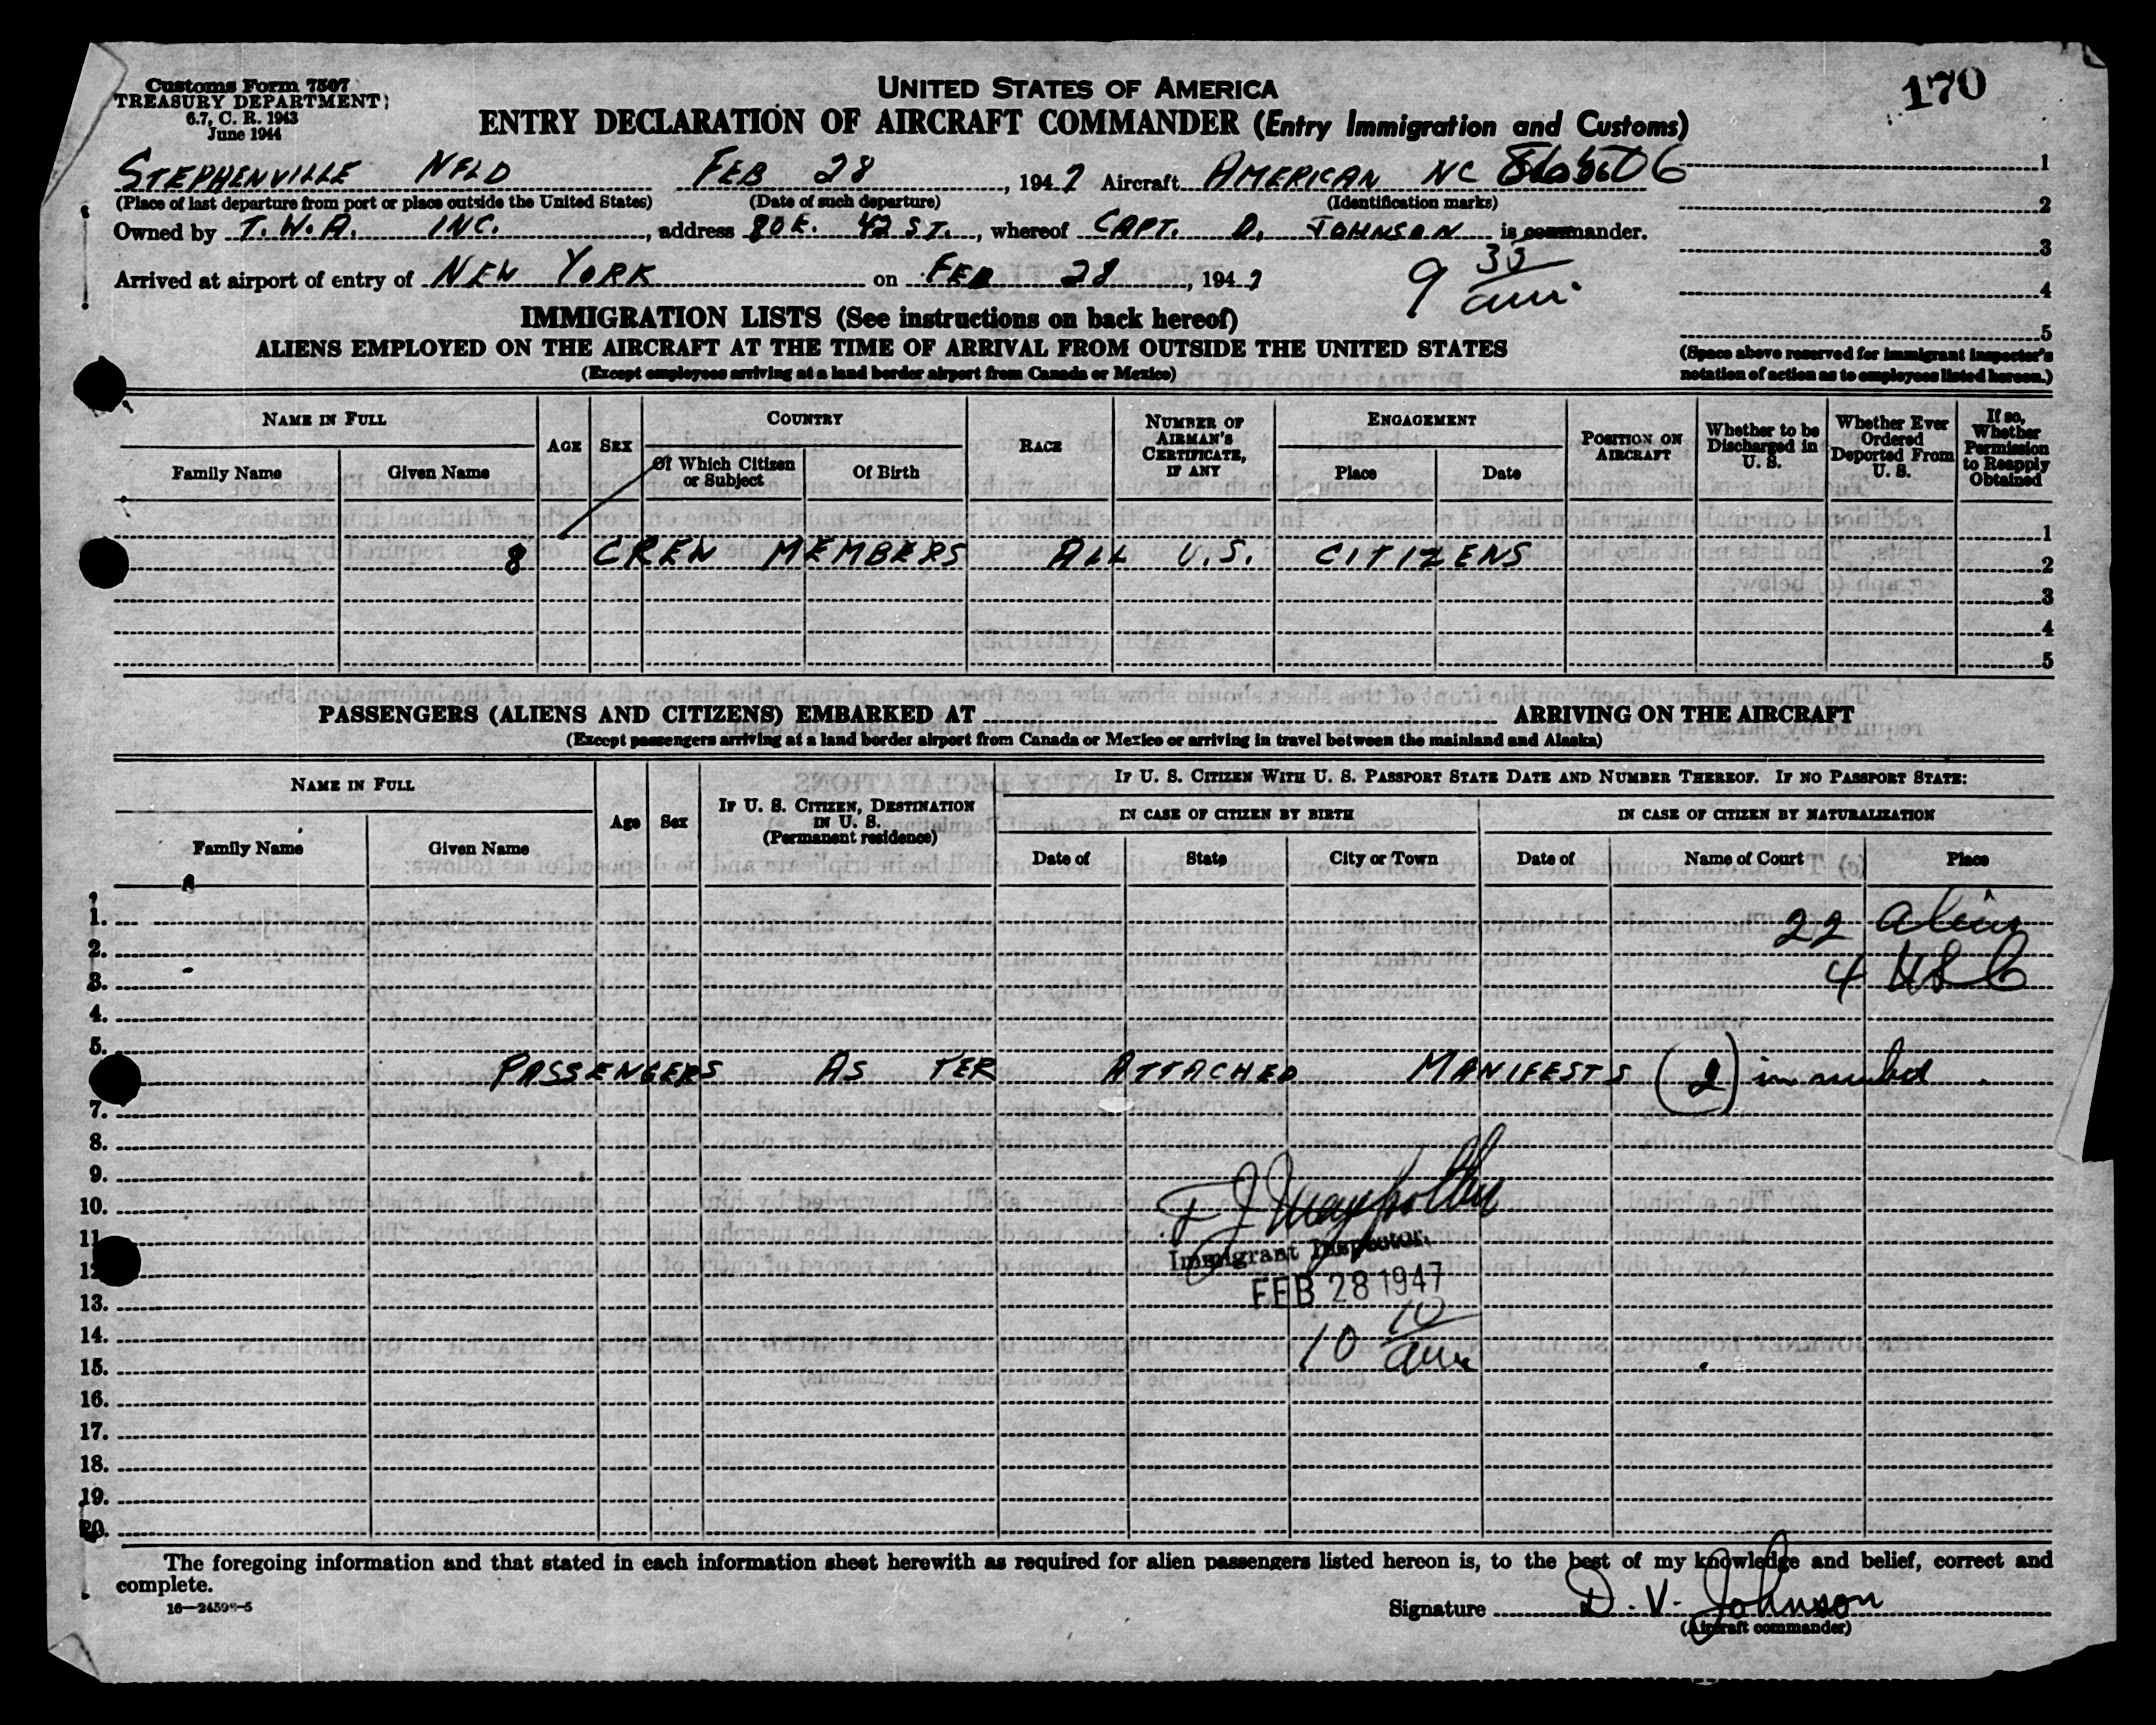 Customs Form 7507
TREASURY DEPARTMENT
6.7, C. R. 1943
June 1944
UNITED STATES OF AMERICA
ENTRY DECLARATION OF AIRCRAFT COMMANDER (Entry Immigration and Customs)
170
STEPHENVILLE NFLD FEB 28, 1947 Aircraft AMERICAN NC
(Place of last departure from port or place outside the United States) (Date of such departure) (Identification marks)
Owned by T.W.A. INC., address 80 E. 42 ST., whereof CAPT. D. JOHNSON is commander.
Arrived at airport of entry of NEW YORK on FEB 28, 1947
9 35 am
1
2
3
4
5
(Space above reserved for immigrant inspector's notation of action as to employees listed hereon.)
IMMIGRATION LISTS (See instructions on back hereof)
ALIENS EMPLOYED ON THE AIRCRAFT AT THE TIME OF ARRIVAL FROM OUTSIDE THE UNITED STATES
(Except employees arriving at a land border airport from Canada or Mexico)
NAME IN FULL
Family Name Given Name
AGE SEX
COUNTRY
Of Which Citizen or Subject Of Birth
RACE
NUMBER OF AIRMAN'S CERTIFICATE, IF ANY
ENGAGEMENT
Place Date
POSITION ON AIRCRAFT
Whether to be Discharged in U. S.
Whether Ever Ordered Deported From U. S.
If so, Whether Permission to Reapply Obtained
1
8 CREW MEMBERS ALL U.S. CITIZENS 2
3
4
5
PASSENGERS (ALIENS AND CITIZENS) EMBARKED AT ARRIVING ON THE AIRCRAFT
(Except passengers arriving at a land border airport from Canada or Mexico or arriving in travel between the mainland and Alaska)
NAME IN FULL
Family Name Given Name
Age Sex
IF U. S. CITIZEN, DESTINATION IN U. S.
(Permanent residence)
IF U. S. CITIZEN WITH U. S. PASSPORT STATE DATE AND NUMBER THEREOF. IF NO PASSPORT STATE:
IN CASE OF CITIZEN BY BIRTH IN CASE OF CITIZEN BY NATURALIZATION
Date of State City or Town Date of Name of Court Place
1. 22 alien
2.
3. 4 USC
4.
5.
PASSENGERS AS PER ATTACHED MANIFESTS (2) in number
7.
8.
9.
10.
11
Immigrant Inspector.
12
FEB 28 1947
13.
14. 10 10 am
15.
16.
17.
18.
19.
20.
The foregoing information and that stated in each information sheet herewith as required for alien passengers listed hereon is, to the best of my knowledge and belief, correct and
complete.
16—24598-5
Signature D. V. Johnson
(Aircraft commander)